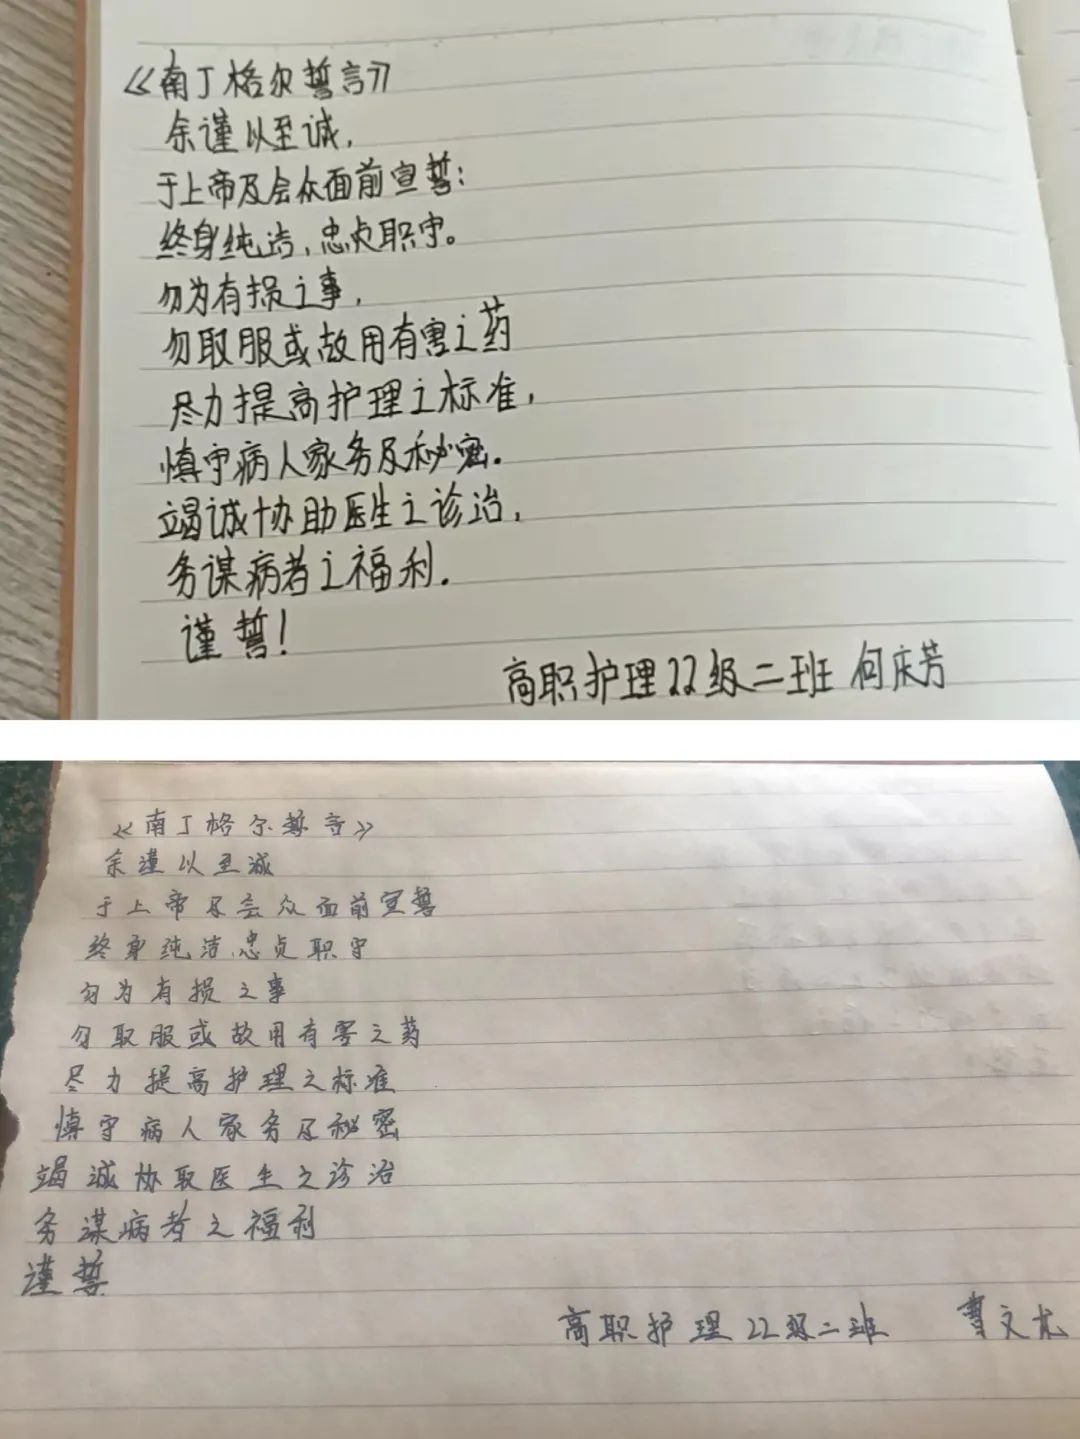 《南丁格尔誓言》
余谨以至诚,
于上帝及会众面前宣誓:
终身纯洁,忠贞职守。
勿为有损之事,
勿取服或故用有害之药
尽力提高护理之标准,
慎守病人家务及秘密.
竭诚协助医生之诊治,
务谋病者之福利.
谨誓!
高职护理22级二班 何庆芳
《南丁格尔誓言》
余谨以至诚
于上帝及会众面前宣誓
终身纯洁,忠贞职守
勿为有损之事
勿取服或故用有害之药
尽力提高护理之标准
慎守病人家务及秘密
竭诚协取医生之诊治
务谋病者之福利
谨誓
高职护理22级二班 曹文尤